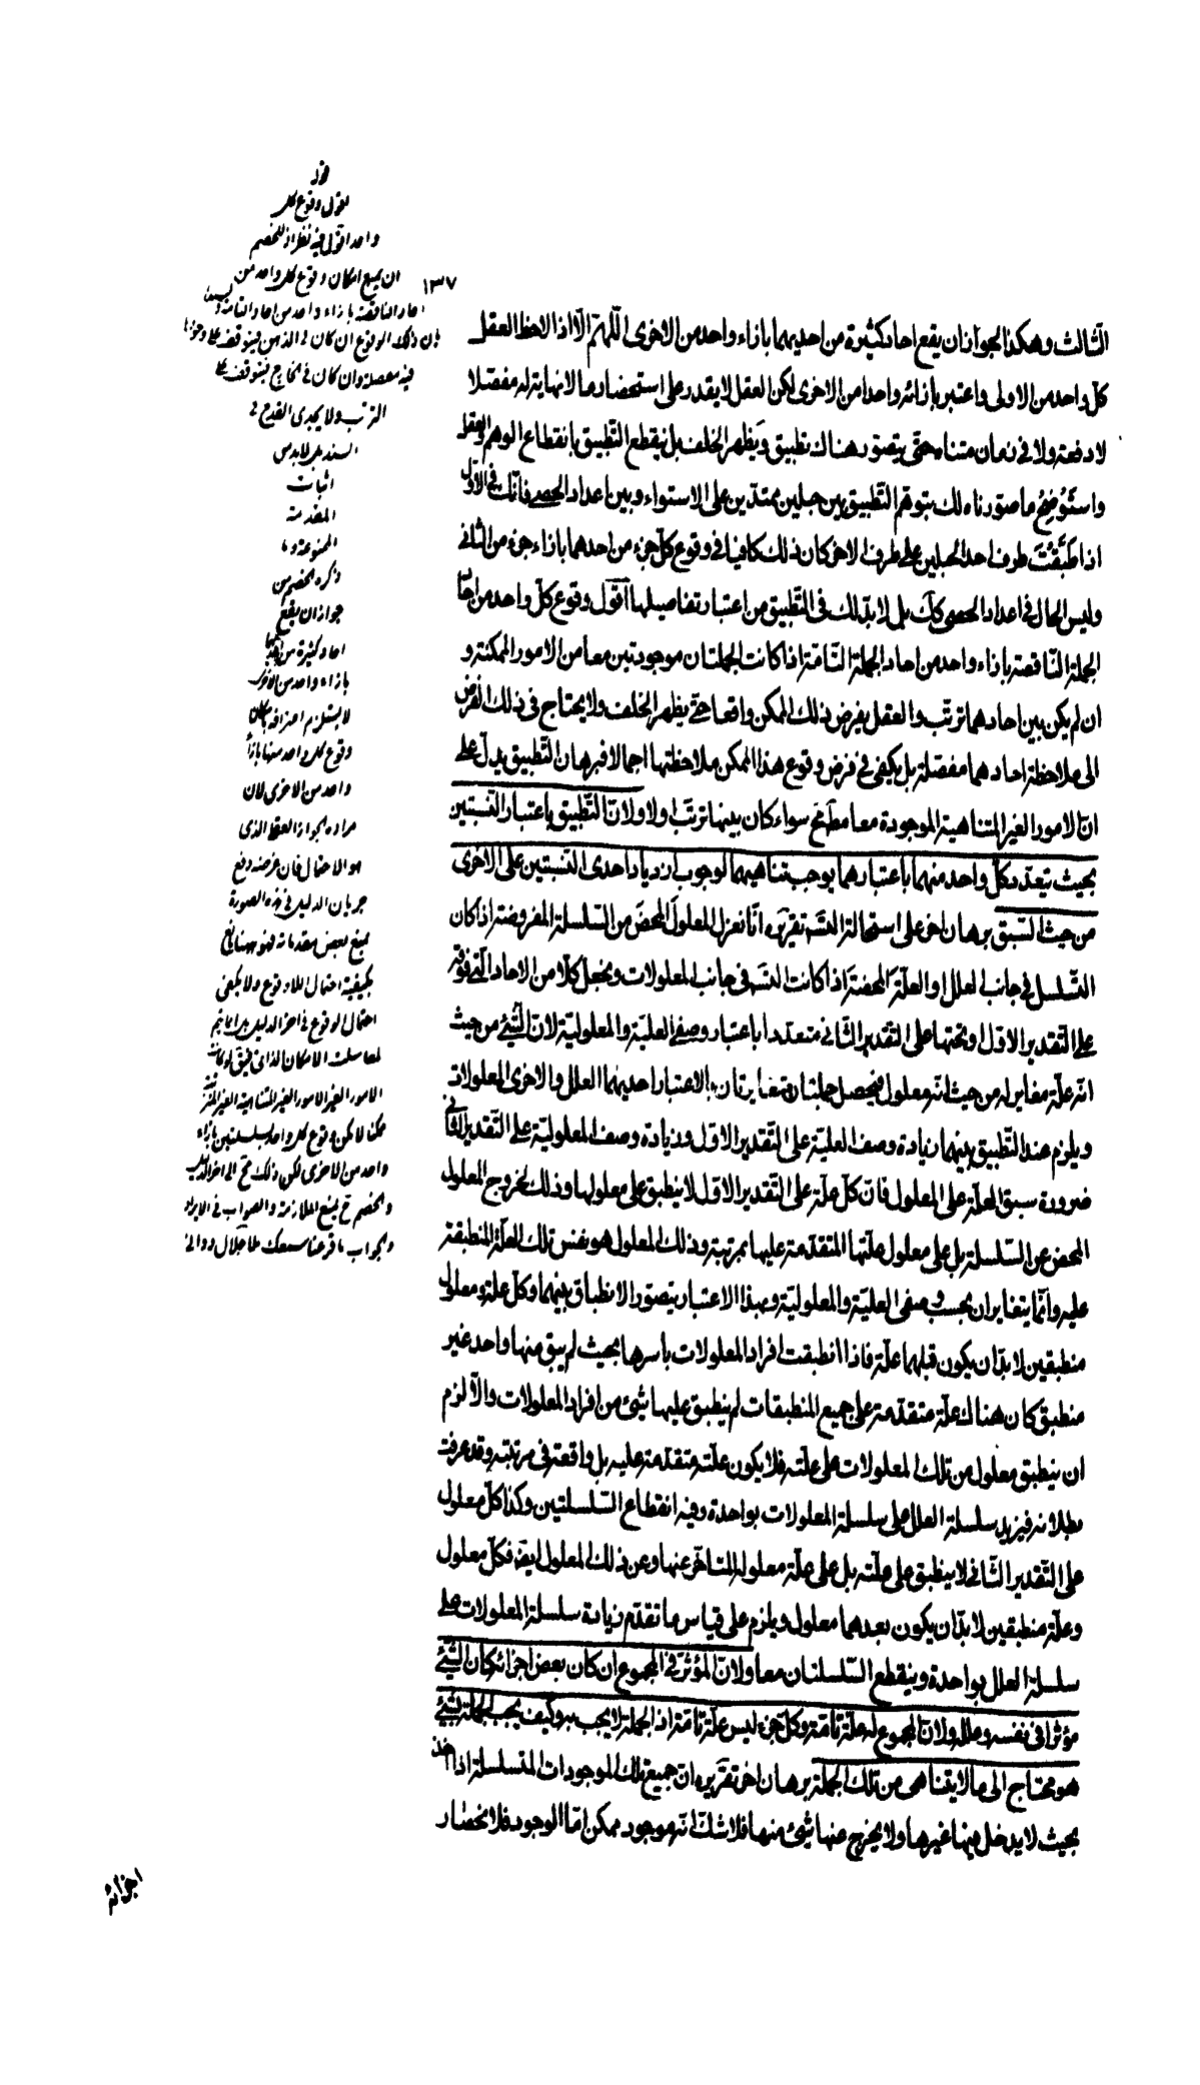 ١٣٧
الثالث وهكذا لجواز ان يقع احاد كثيرة من احديهما بازاء واحد من الاخرى اللّهم الّا اذا لاحظ العقل
كل واحد من الاولى واعتبر بازائه واحدا من الاخرى لكن العقل لا يقدر على استحضار ما لا نهاية له مفصّلا
لا دفعة ولا فى زمان متناه حتى يتصور هناك تطبيق ويظهر الخلف بل ينقطع التطبيق بانقطاع الوهم والعقل
واستوضح ما صورناه لك بتوهم التطبيق بين جبلين ممتدين على الاستواء وبين اعداد الحصى فانك فى الاول
اذا طبقت طرف احد الحبلين على طرف الاخر كان ذلك كافيا فى وقوع كل جزء من احدهما بازاء جزء من الثانى
وليس الحال فى اعداد الحصى كك بل لا بد لك فى التطبيق من اعتبار تفاصيلها اقول وقوع كل واحد من احاد
الجملة الناقصة بازاء واحد من احاد الجملة التامة اذا كانت الجملتان موجودتين معا من الامور الممكنة و
ان لم يكن بين احادهما ترتب والعقل يفرض ذلك الممكن واقعا حتى يظهر الخلف ولا يحتاج فى ذلك الفرض
الى ملاحظة احادهما مفصلة بل يكفى فى فرض وقوع هذا الممكن ملاحظتها اجمالا فبرهان التطبيق يدل على
ان الامور الغير المتناهية الموجودة معا مطلقا مح سواء كان بينها ترتب او لا ولان التطبيق باعتبار النسبتين
بحيث يتعدد كل واحد منهما باعتبارهما يوجب تناهيهما لوجوب ازدياد احدى النسبتين على الاخرى
من حيث السبق برهان اخر على استحالة التسه تقريره انا نعزل المعلول المحض من السلسلة المفروضة اذا كان
التسلسل فى جانب العلل او العلة المحضة اذا كانت التسه فى جانب المعلولات ونجعل كلا من الاحاد التى فوقه
على التقدير الاول وتحتها على التقدير الثانى متعددا باعتبار وصفى العلية والمعلولية لان الشئ من حيث
انه علة مغاير له من حيث انه معلول فيحصل جملتان متغايرتان بالاعتبار احديهما العلل والاخرى المعلولات
ويلزم عند التطبيق بينهما زيادة وصف العلية على التقدير الاول وزيادة وصف المعلولية على التقدير الثانى
ضرورة سبق العلة على المعلول فان كل علة على التقدير الاول لا ينطبق على معلولها وذلك لخروج المعلول
المحض عن السلسلة بل على معلول علتها المتقدمة عليها بمرتبة وذلك المعلول هو نفس تلك العلة المنطبقة
عليه وانما يتغايران بحسب وصفى العلية والمعلولية وبهذا الاعتبار يتصور الانطباق بينهما وكل علة ومعلول
منطبقين لا بد ان يكون قبلهما علة فاذا انطبقت افراد المعلولات باسرها بحيث لم يبق منها واحد غير
منطبق كان هناك علة متقدمة على جميع المنطبقات لم ينطبق عليها شئ من افراد المعلولات والا لزم
ان ينطبق معلول من تلك المعلولات على علته فلا يكون علته متقدمة عليه بل واقعة فى مرتبته وقد عرفت
بطلانه فيزيد سلسلة العلل على سلسلة المعلولات بواحدة وفيه انقطاع السلسلتين وكذا كل معلول
على التقدير الثانى لا ينطبق على علته بل على علة معلوله المتاخر عنها وعن ذلك المعلول ايضا فكل معلول
وعلة منطبقين لا بد ان يكون بعدهما معلول ويلزم على قياس ما تقدم زيادة سلسلة المعلولات على
سلسلة العلل بواحدة وينقطع السلسلتان معا ولان المؤثر فى المجموع ان كان بعض اجزائه كان الشئ
مؤثرا فى نفسه وعلله ولان المجموع له علة تامة وكل جزء ليس علة تامة اذ الجملة لا يجب به وكيف يجب الجملة بشئ
هو محتاج الى ما لا يتناهى من تلك الجملة برهان اخر تقريره ان جميع تلك الموجودات المتسلسلة اذا اخذ
بحيث لا يدخل فيها غيرها ولا يخرج عنها شئ منها فلا شك انه موجود ممكن اما الوجود فلانحصار
اجزائه
قوله
اقول وقوع كل
واحد اقول فيه نظر اذ للخصم
ان يمنع امكان وقوع كل واحد من
احاد الناقصة بازاء واحد من احاد التامة
بان ذلك الوقوع ان كان فى الذهن فيتوقف على وجودها
فيه مفصلة وان كان فى الخارج فيتوقف على
الترتب ولا يجدى القدح فى
السند بل لا بد من
اثبات
المقدمة
الممنوعة وما
ذكره الخصم من
جواز ان يقع
احاد كثيرة من احديهما
بازاء واحد من الاخرى
لا يستلزم اعترافه بامكان
وقوع كل واحد منها بازاء
واحد من الاخرى لان
مراده بالجواز العقلى الذى
هو الاحتمال فان غرضه دفع
جريان الدليل فى هذه الصورة
بمنع بعض مقدماته فهو ههنا مانع
يكفيه احتمال اللاوقوع ولا يكفى
احتمال الوقوع فى اجراء الدليل
واحد من الاخرى لكن ذلك
والخصم يمنع الملازمة والصواب فى الايراد
والجواب ما قرع سمعك